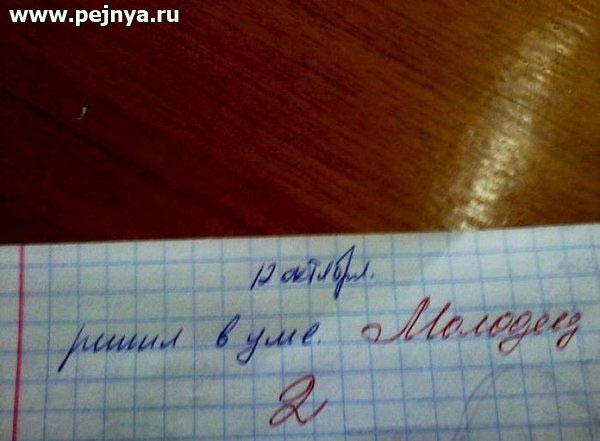 www.pejnya.ru
12 октября.
решил в уме. Молодец
2